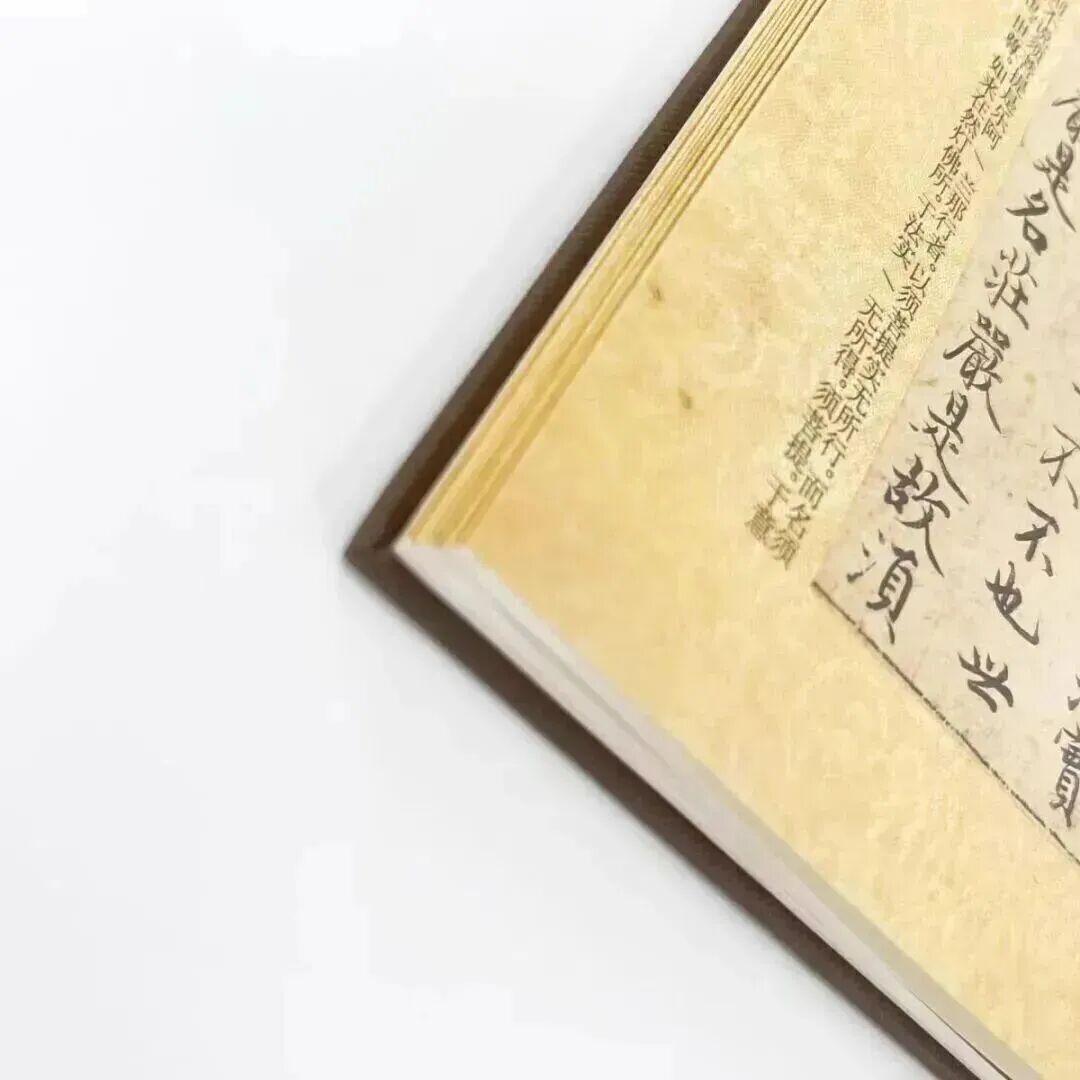 不不也世
是名莊嚴是故須
不说须菩提是乐阿/兰那行者。以须菩提实无所行。而名须
如来在然灯佛所。于法实/无所得。须菩提。于意